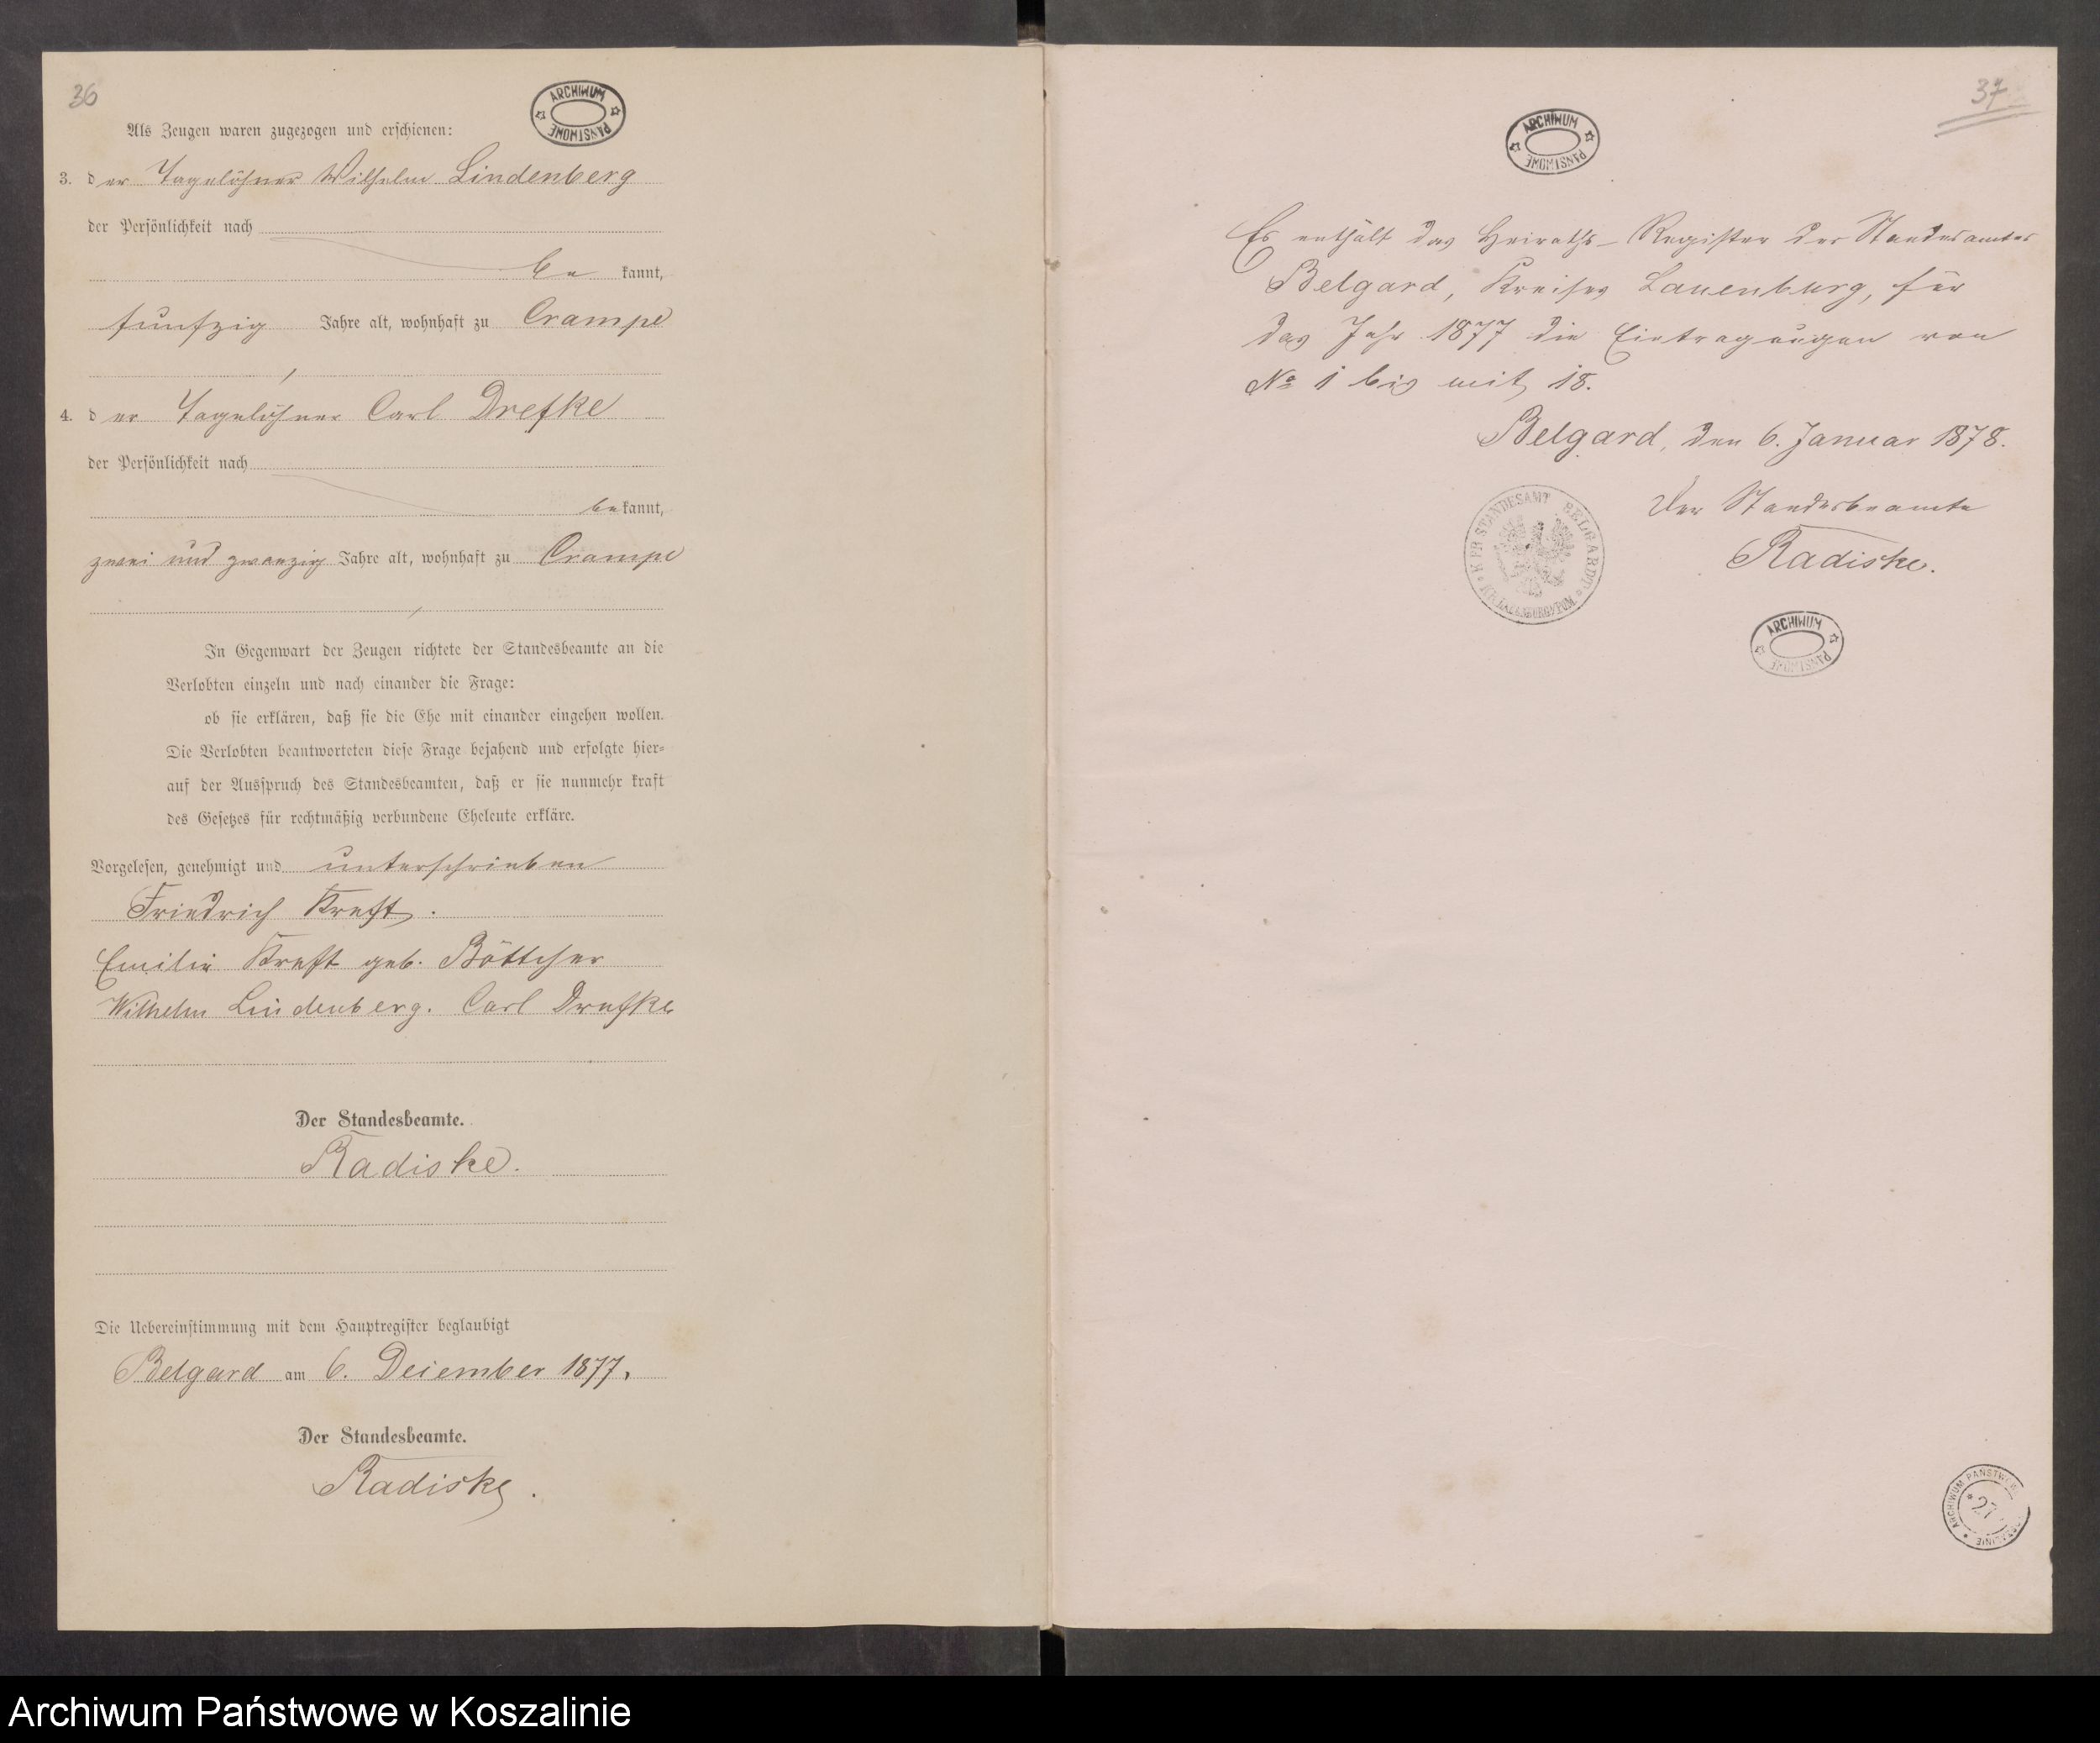 36
ARCHIWUM PAŃSTWOWE
Als Zeugen waren zugezogen und erschienen:
3. der Tagelöhner Wilhelm Lindenberg
der Persönlichkeit nach
be kannt,
funfzig Jahre alt, wohnhaft zu Crampe
4. der Tagelöhner Carl Drefke
der Persönlichkeit nach
bekannt,
zwei und zwanzig Jahre alt, wohnhaft zu Crampe
In Gegenwart der Zeugen richtete der Standesbeamte an die
Verlobten einzeln und nach einander die Frage:
ob sie erklären, daß sie die Ehe mit einander eingehen wollen.
Die Verlobten beantworteten diese Frage bejahend und erfolgte hier=
auf der Ausspruch des Standesbeamten, daß er sie nunmehr kraft
des Gesetzes für rechtmäßig verbundene Eheleute erkläre.
Vorgelesen, genehmigt und unterschrieben
Friedrich Kreft.
Emilie Kreft geb. Böttcher
Wilhelm Lindenberg. Carl Drefke
Der Standesbeamte.
Radiske.
Die Uebereinstimmung mit dem Hauptregister beglaubigt
Belgard am 6. Deiember 1877.
Der Standesbeamte.
Radiske.
37
ARCHIWUM PAŃSTWOWE
Es enthält das Heiraths-Register des Standesamtes
Belgard, Kreises Lauenburg, für
das Jahr 1877 die Eintragungen von
No 1 bis mit 18.
Belgard, den 6. Januar 1878.
Der Standesbeamte
Radiske.
K. PR. STANDESAMT BELGARD * KR. LAUENBURG I/POM. *
ARCHIWUM PAŃSTWOWE
ARCHIWUM PAŃSTWOWE
27
Archiwum Państwowe w Koszalinie